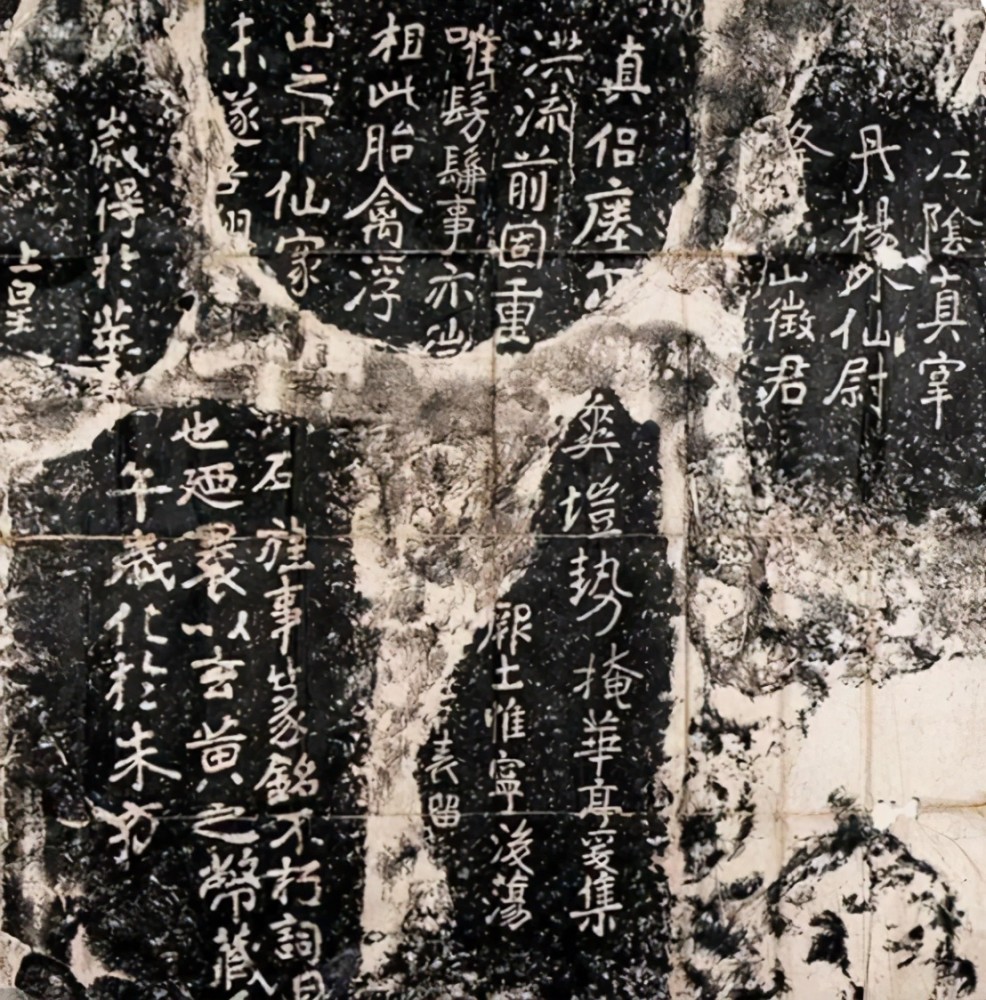 江陰真宰
丹楊外仙尉
夅山徵君
真侶瘞尔
洪流前固重
唯髣髴事亦
相此胎禽浮
山之下仙家
未遂吾翔
歲得於華
上皇
爽塏勢掩華亭爰集
厥土惟寧後蕩
表留
石旌事篆銘不朽詞曰
也廼裹以玄黄之幣藏
午歲化於朱方